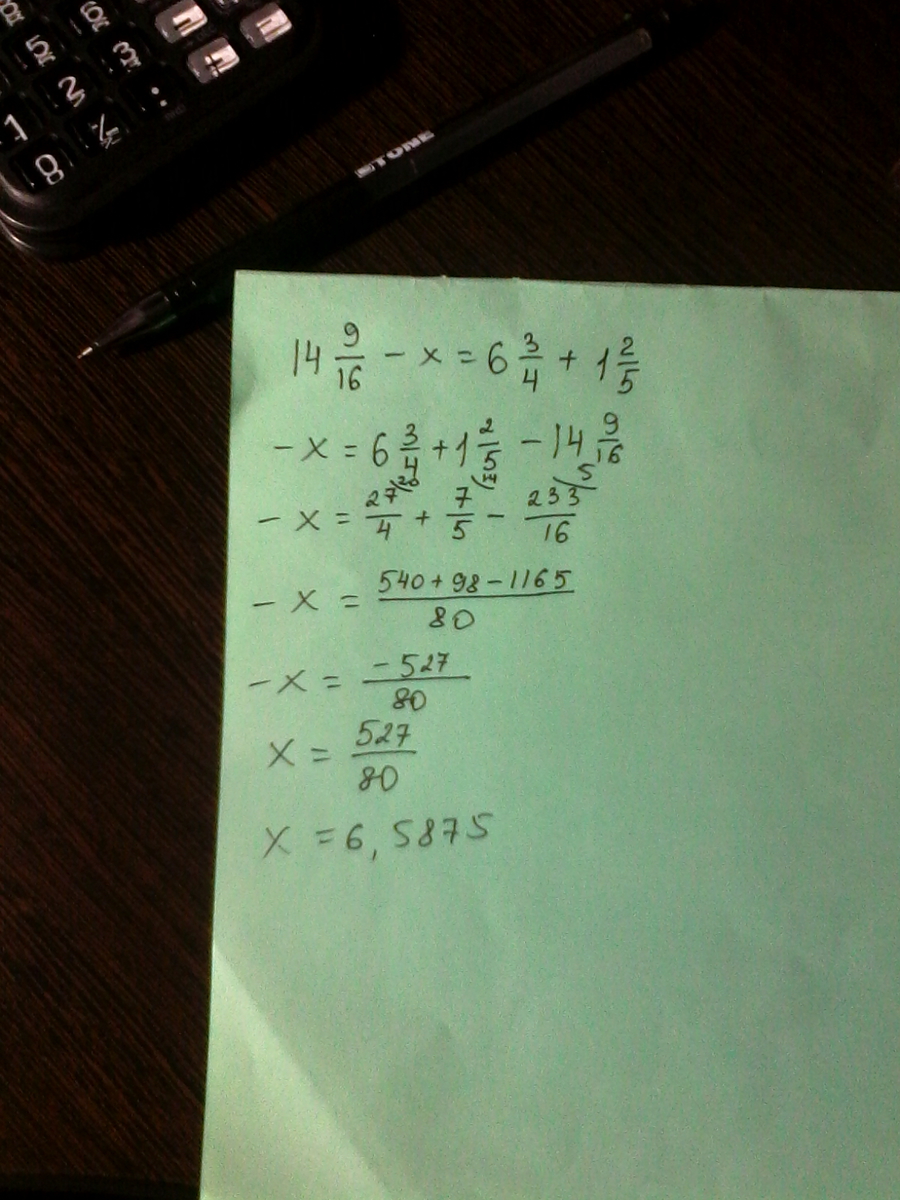 8 6
5 3
1 2 :
0 √
ETONE
14 9/16 - x = 6 3/4 + 1 2/5
- x = 6 3/4 + 1 2/5 - 14 9/16
- x = 27/4 \20 + 7/5 \14 - 233/16 /5
- x = 540+98-1165/80
- x = -527/80
x = 527/80
x = 6,5875